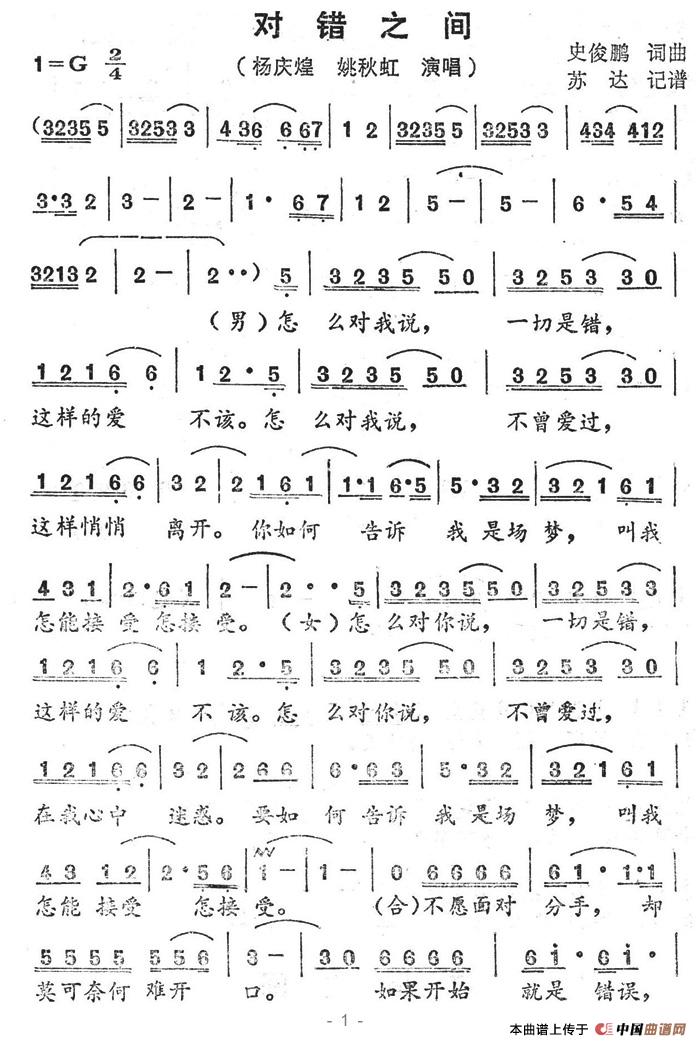 对错之间
1=G 2/4
(杨庆煌 姚秋虹 演唱)
史俊鹏 词曲
苏达 记谱
(32355 | 32533 | 436 667 | 1 2 | 32355 | 32533 | 434 412
3·32 | 3- | 2- | 1· 67 | 1 2 | 5- | 5- | 6· 54
32132 | 2- | 2··) 5 | 3235 50 | 3253 30
(男)怎 么对我说, 一切是错,
1216 6 | 12· 5 | 3235 50 | 3253 30
这样的爱 不该。怎 么对我说, 不曾爱过,
1216 6 | 32 | 2 161 | 1·1 6·5 | 5·32 | 321 61
这样悄悄 离开。你如何 告诉 我是场梦, 叫我
431 | 2·61 | 2- | 2·· 5 | 3235 50 | 3253 3
怎能接受怎接受。(女)怎么对你说, 一切是错,
1216 6 | 1 2· 5 | 3235 50 | 3253 30
这样的爱 不该。怎 么对你说, 不曾爱过,
1216 6 | 32 | 266 | 6·63 | 5·32 | 321 61
在我心中 迷惑。要如何告诉我是场梦, 叫我
43 12 | 2·56 | 1- | 1- | 0 6666 | 61· 1·1
怎能接受 怎接受。 (合)不愿面对 分手, 却
5555 55 | 3- | 30 6666 | 61· 61·
莫可奈何难开 口。 如果开始 就是错误,
- 1 -
本曲谱上传于 中国曲谱网